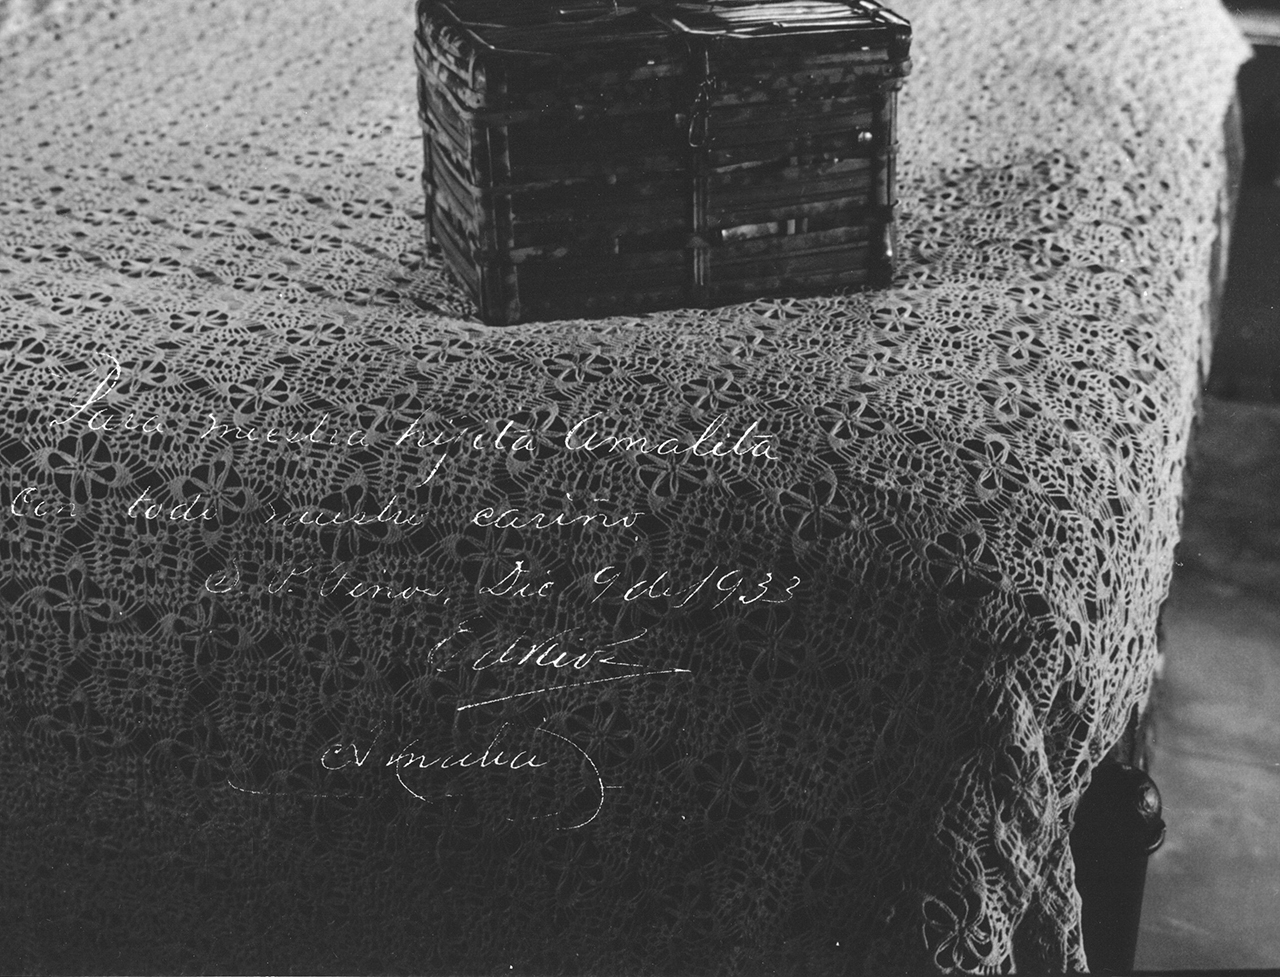 Para nuestra hijita Amalita
Con todo nuestro cariño
S. P. Pinos, Dic 9 de 1933
Amalia